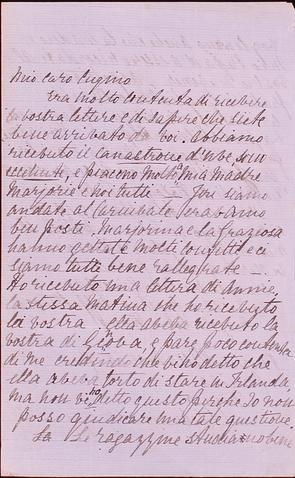 Mio caro Cugino
Era molto contenta di ricevere
la vostra lettera e di sapere che siete
bene arrivato da voi, abbiamo
ricebuto il canastrone d'Ube, sono
eccelente, e piaceno molto a mia madre
Marjorie e noi tutti — Jeri siamo
andate al Carnibale erabamo
ben posti, Marjorina e la fraziosa
hanno gettate molti confetti e ci
siamo tutte bene rallegrate —
Ho ricebuto una lettera di Annie,
la stessa matina che ho ricebuto
la vostra ella abeba ricebuto la
vostra di Gioba, e pare poco contenta
di me credendo che vi ho detto che
ella abeba torto di stare in Irlanda,
ma non vi ho detto questo perche Io non
posso giudicare una tale questione.
La Le ragazzine studiano bene